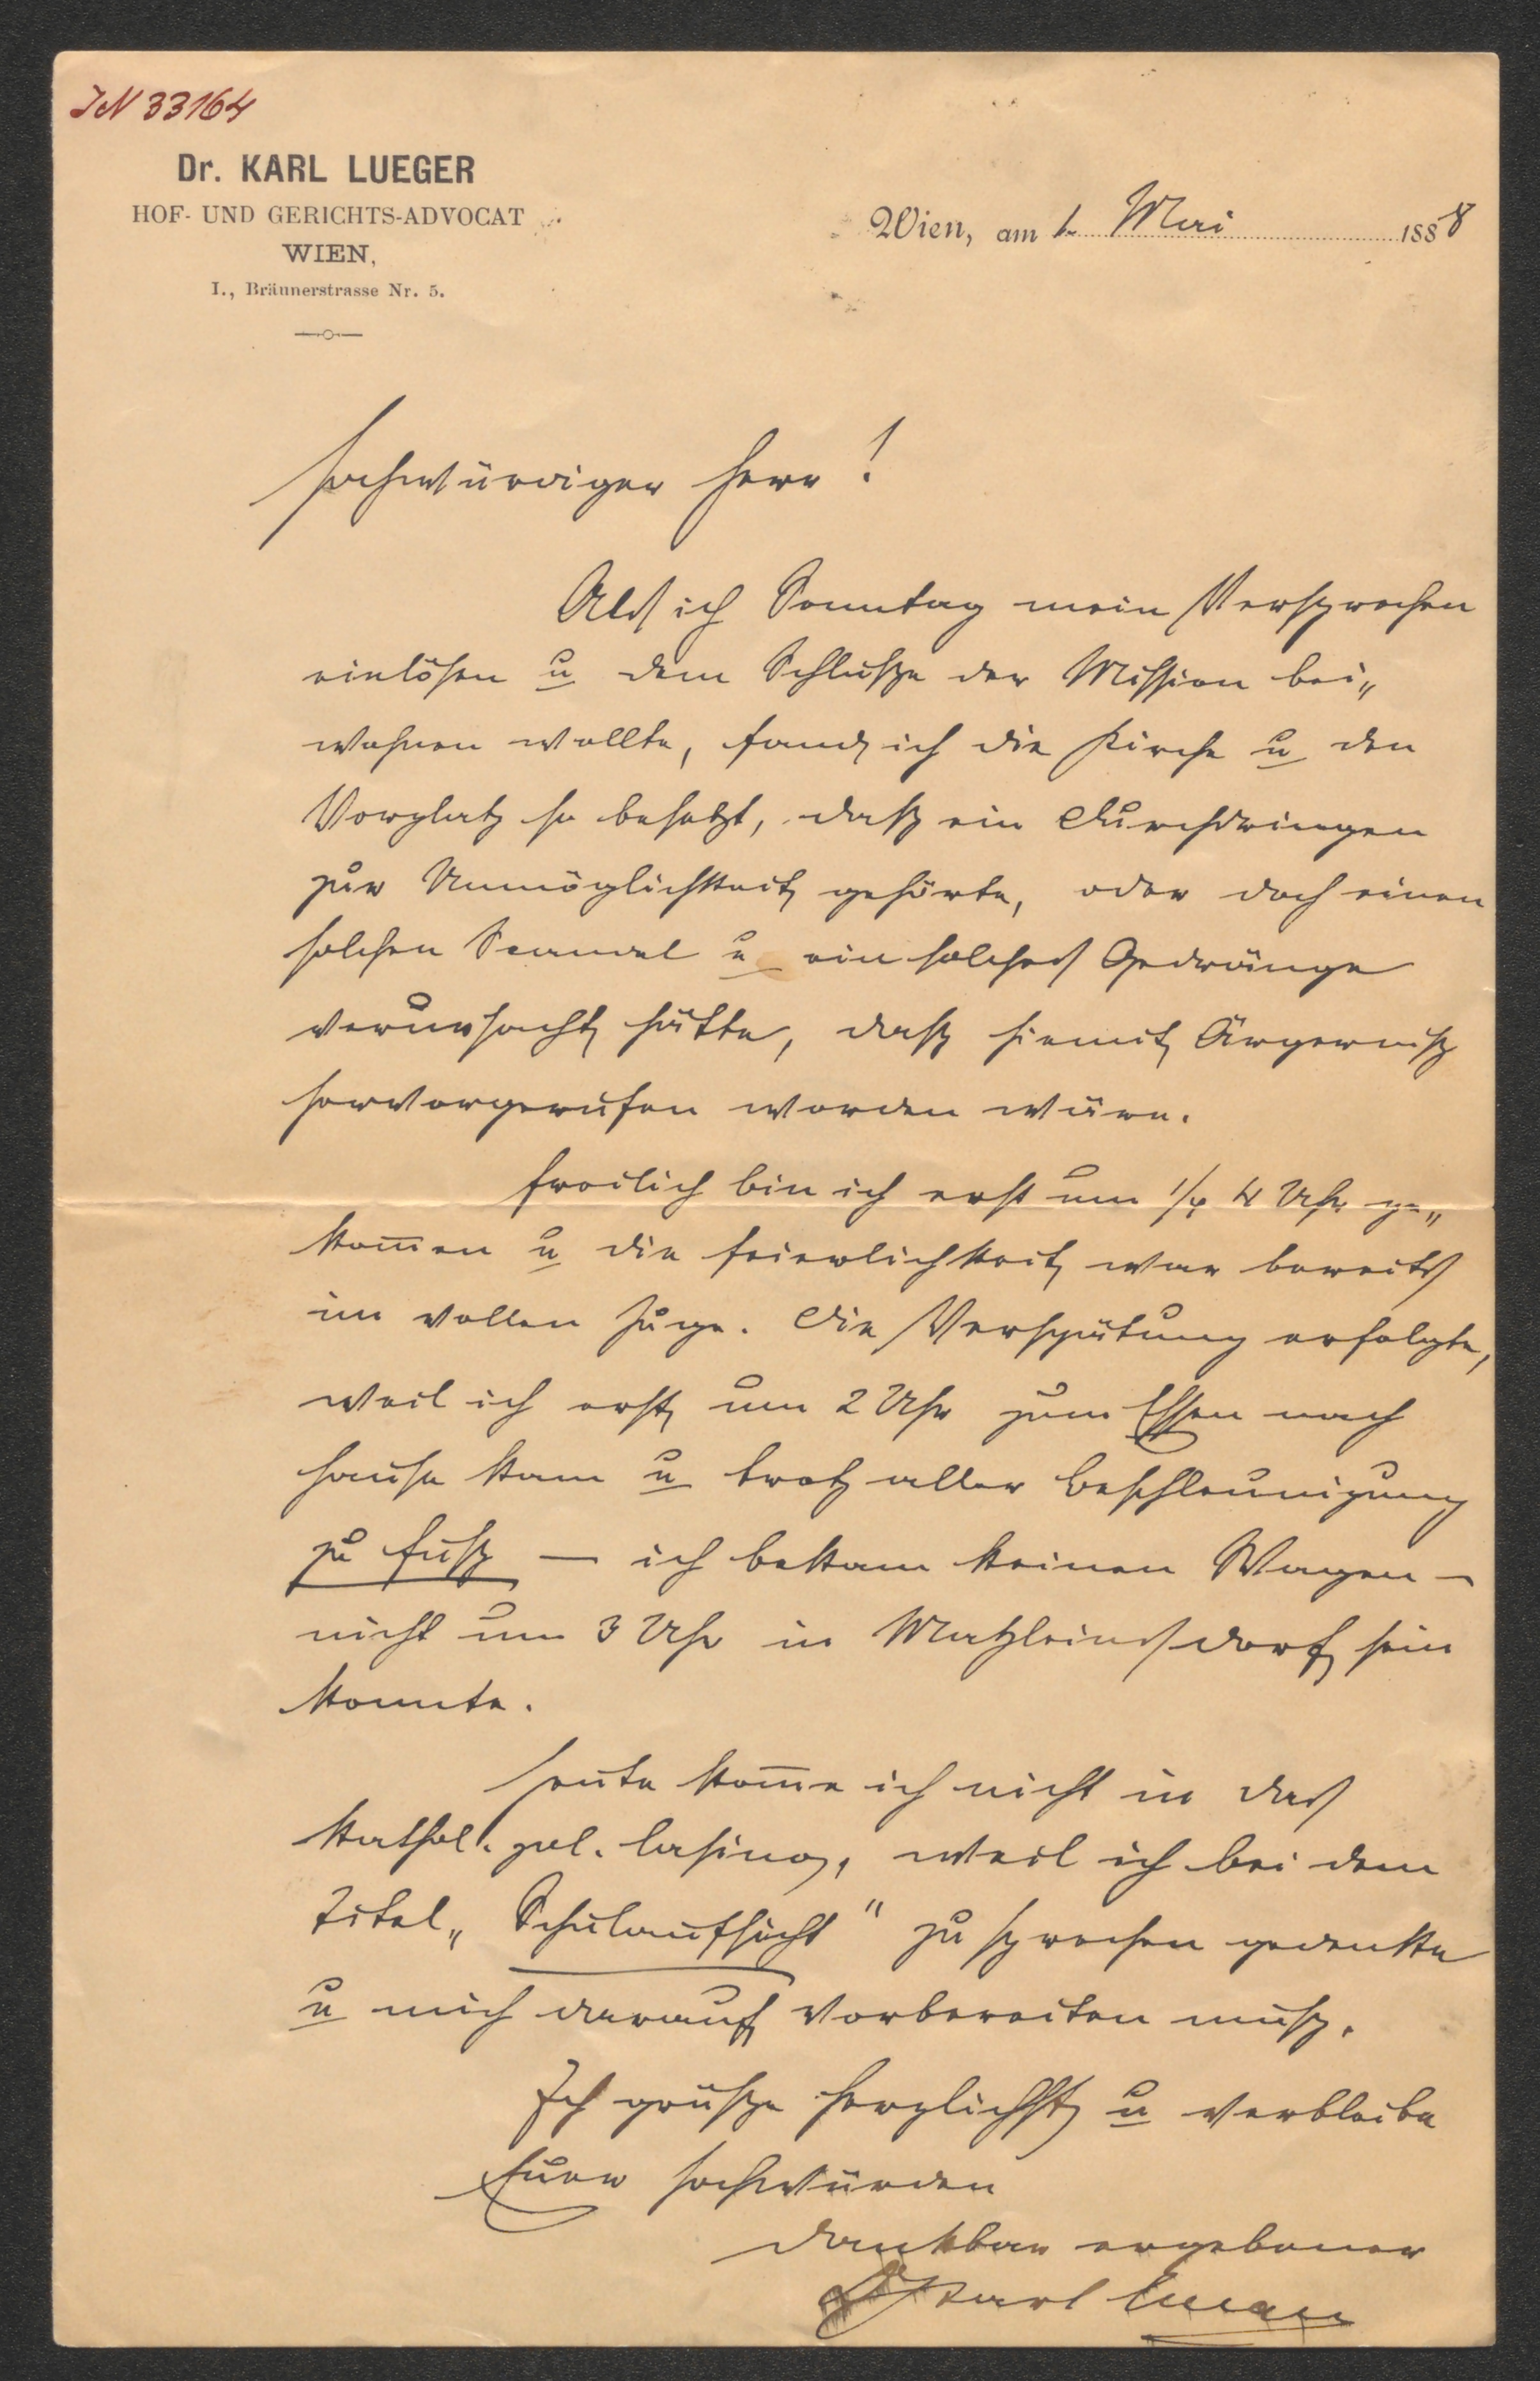 IN 33164
Dr. KARL LUEGER
HOF- UND GERICHTS-ADVOCAT
WIEN,
I., Bräunerstrasse Nr. 5.
Wien, am 1. Mai 1888
Hochwürdiger Herr!
Als ich Sonntag mein Versprechen
einlösen u dem Schluße der Mission bei„
wohnen wollte, fand ich die Kirche u den
Vorplatz so besetzt, daß ein Durchdringen
zur Unmöglichkeit gehörte, oder doch einen
solchen Scandal u ein solches Gedränge
verursacht hätte, daß hiemit Ärgerniß
hervorgerufen worden wäre.
Freilich bin ich erst um 1/4 4 Uhr ge„
kom̄en u die Feierlichkeit war bereits
im vollen Zuge. Die Verspätung erfolgte,
weil ich erst um 2 Uhr zum Essen nach
Hause kam u trotz aller Beschleunigung
zu Fuß — ich bekam keinen Wagen —
nicht um 3 Uhr in Matzleinsdorf sein
konnte.
Heute kom̄e ich nicht in das
kathol. pol. Casino, weil ich bei dem
Titel „Schulaufsicht" zu sprechen gedenke
u mich darauf vorbereiten muß.
Ich grüße herzlichst u verbleibe
Euer Hochwürden
dankbar ergebener
Dr Karl Lueger